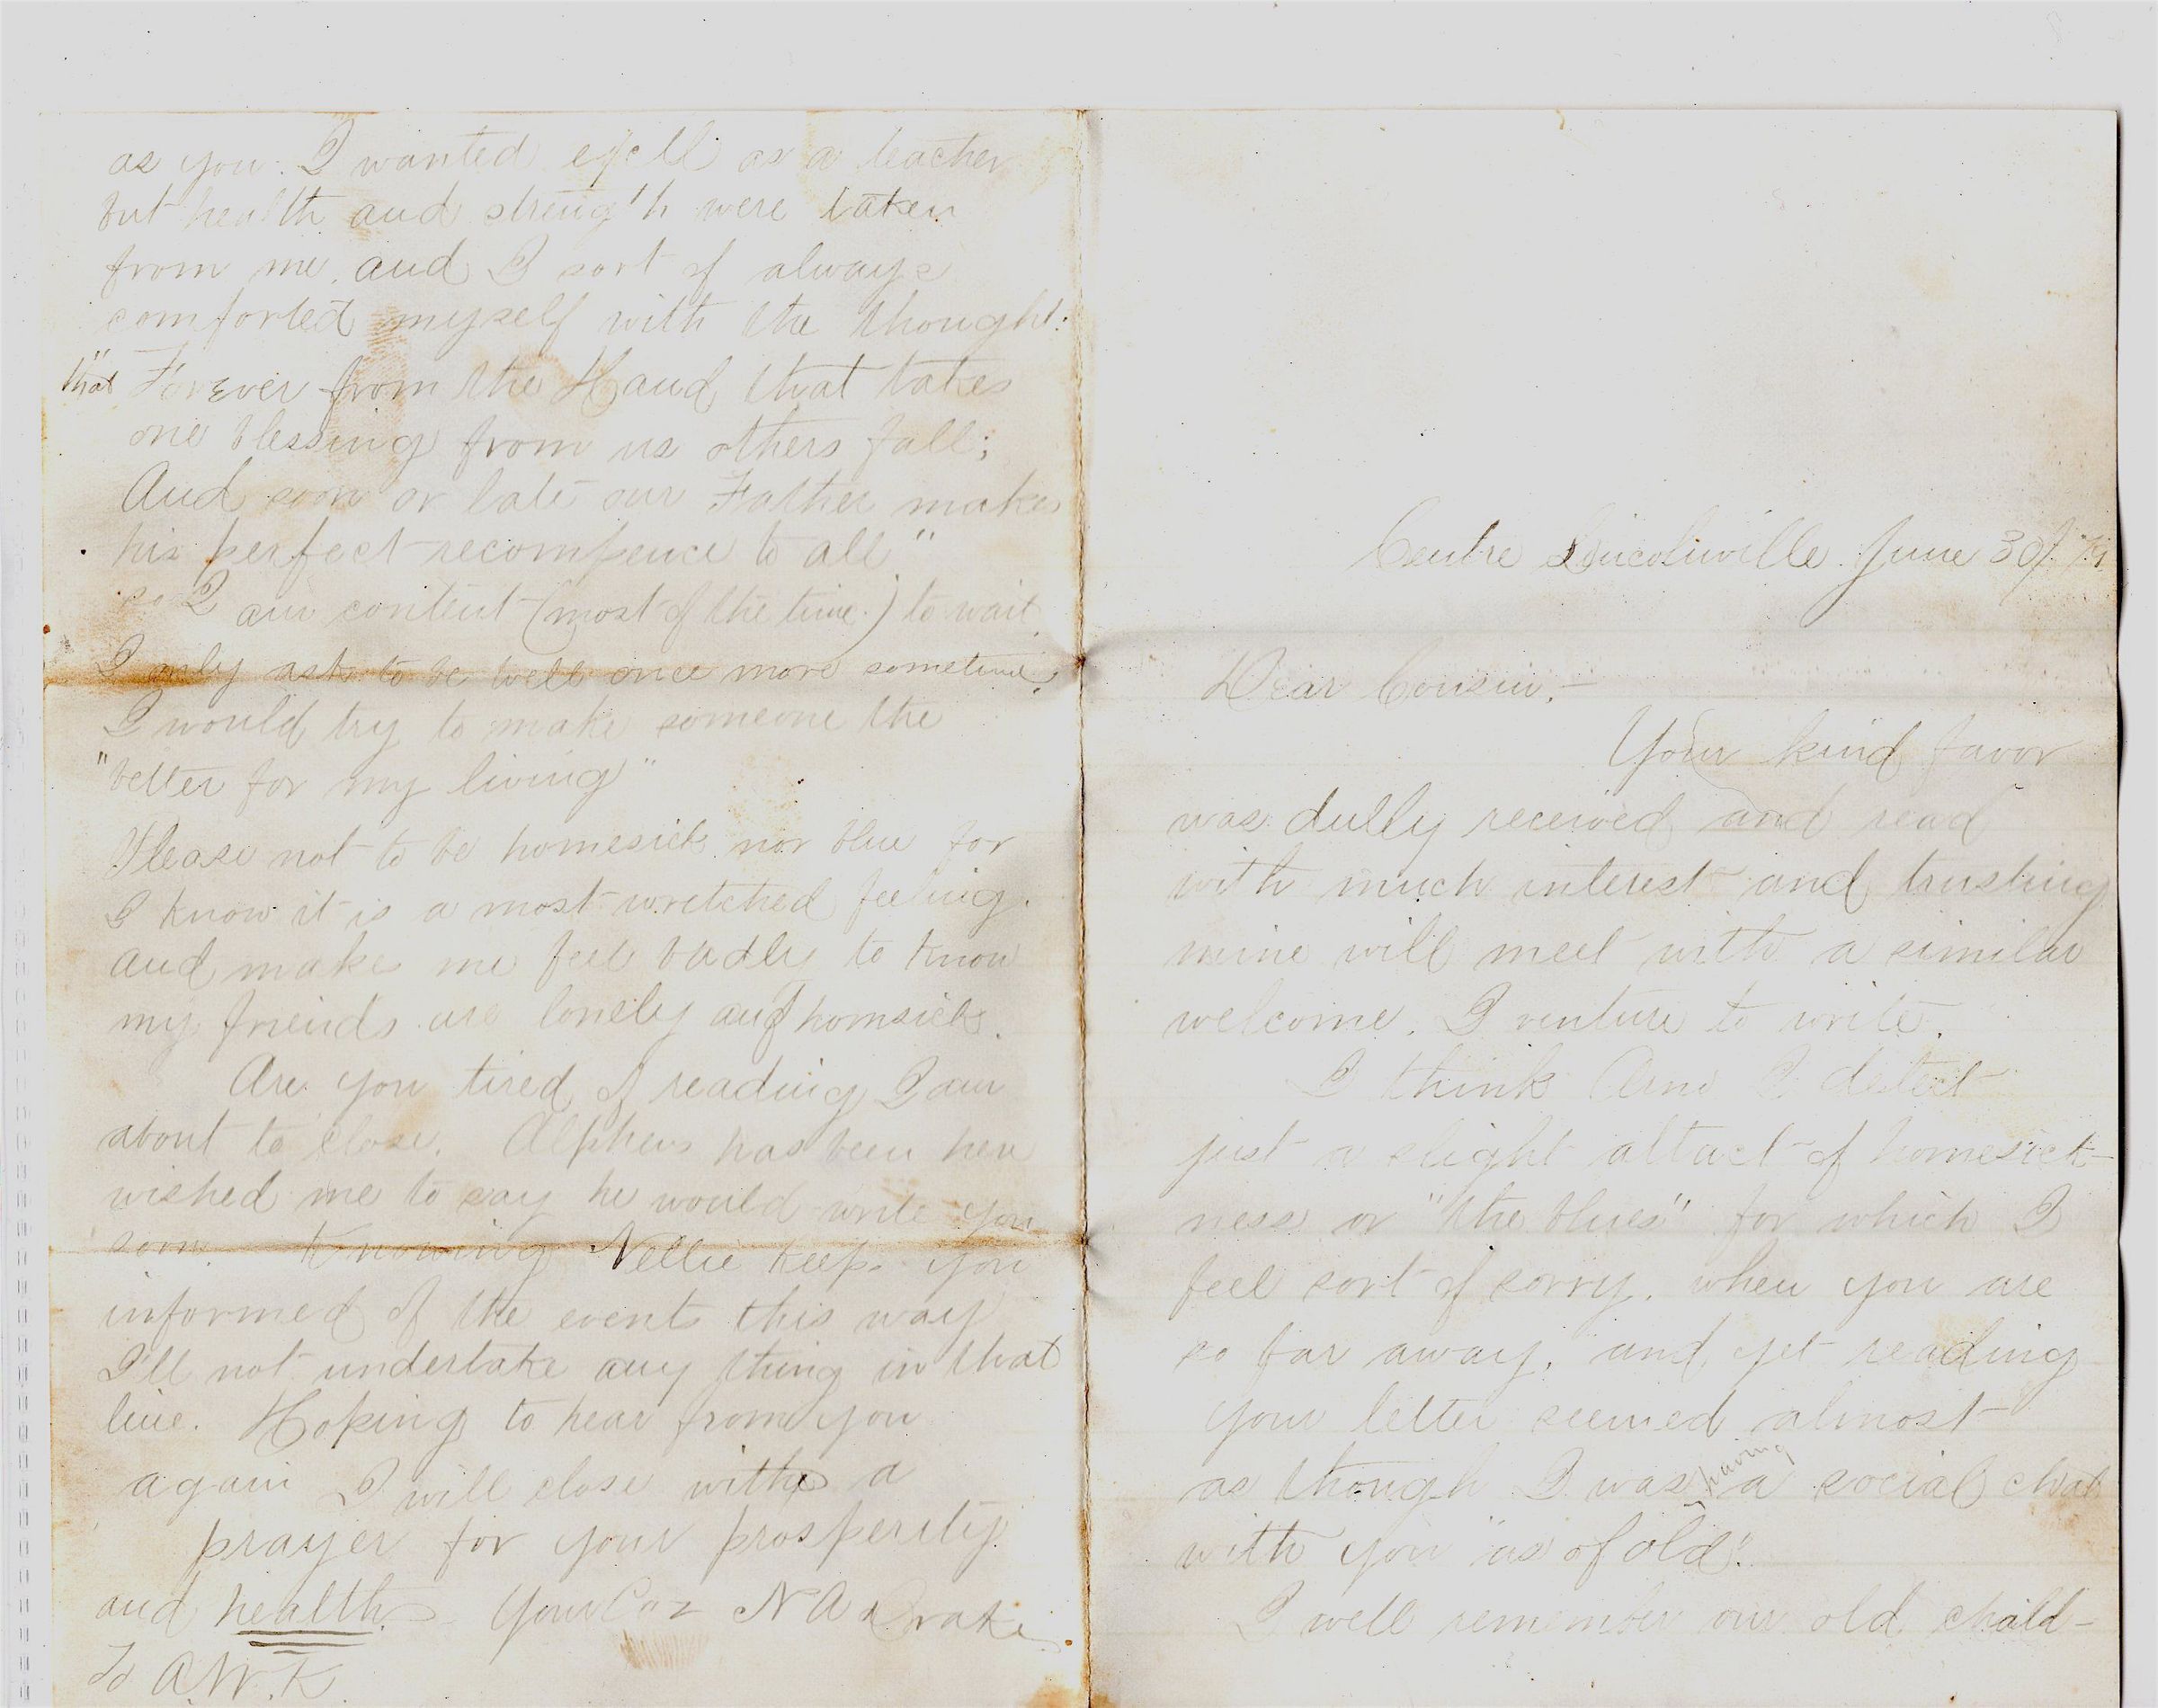 Centre Lincolnville June 30/79
Dear Cousin,—
Your kind favor
was dully received and read
with much interest and trusting
mine will meet with a similar
welcome. I venture to write.
I think Arno I detect
just a slight attact of homesick-
ness or "the blues" for which I
feel sort of sorry. when you are
so far away. and yet reading
your letter seemed almost
as though I was having a social chat
with you "as of old".
I well remember our old chald-
as you. I wanted excell as a teacher
but health and strength were taken
from me. and I sort of always
comforted myself with the thought:
that "Forever from the Hand that takes
one blessing from us others fall;
And soon or late our Father makes
his perfect recompence to all"
so I am content (most of the time.) to wait.
I only ask to be well once more sometime.
I would try to make someone the
"better for my living"
Please not to be homesick nor blue for
I know it is a most wretched feeling.
and make me feel badly to know
my friends are lonely and homsick.
Are you tired of reading I am
about to close. Alpheus has been here
wished me to say he would write you
soon. Knowing Nellie keeps you
informed of the events this way
I'll not undertake any thing in that
line. Hoping to hear from you
again I will close with a
prayer for your prosperity
and health. Your Coz N A Drake
To A.W.K.